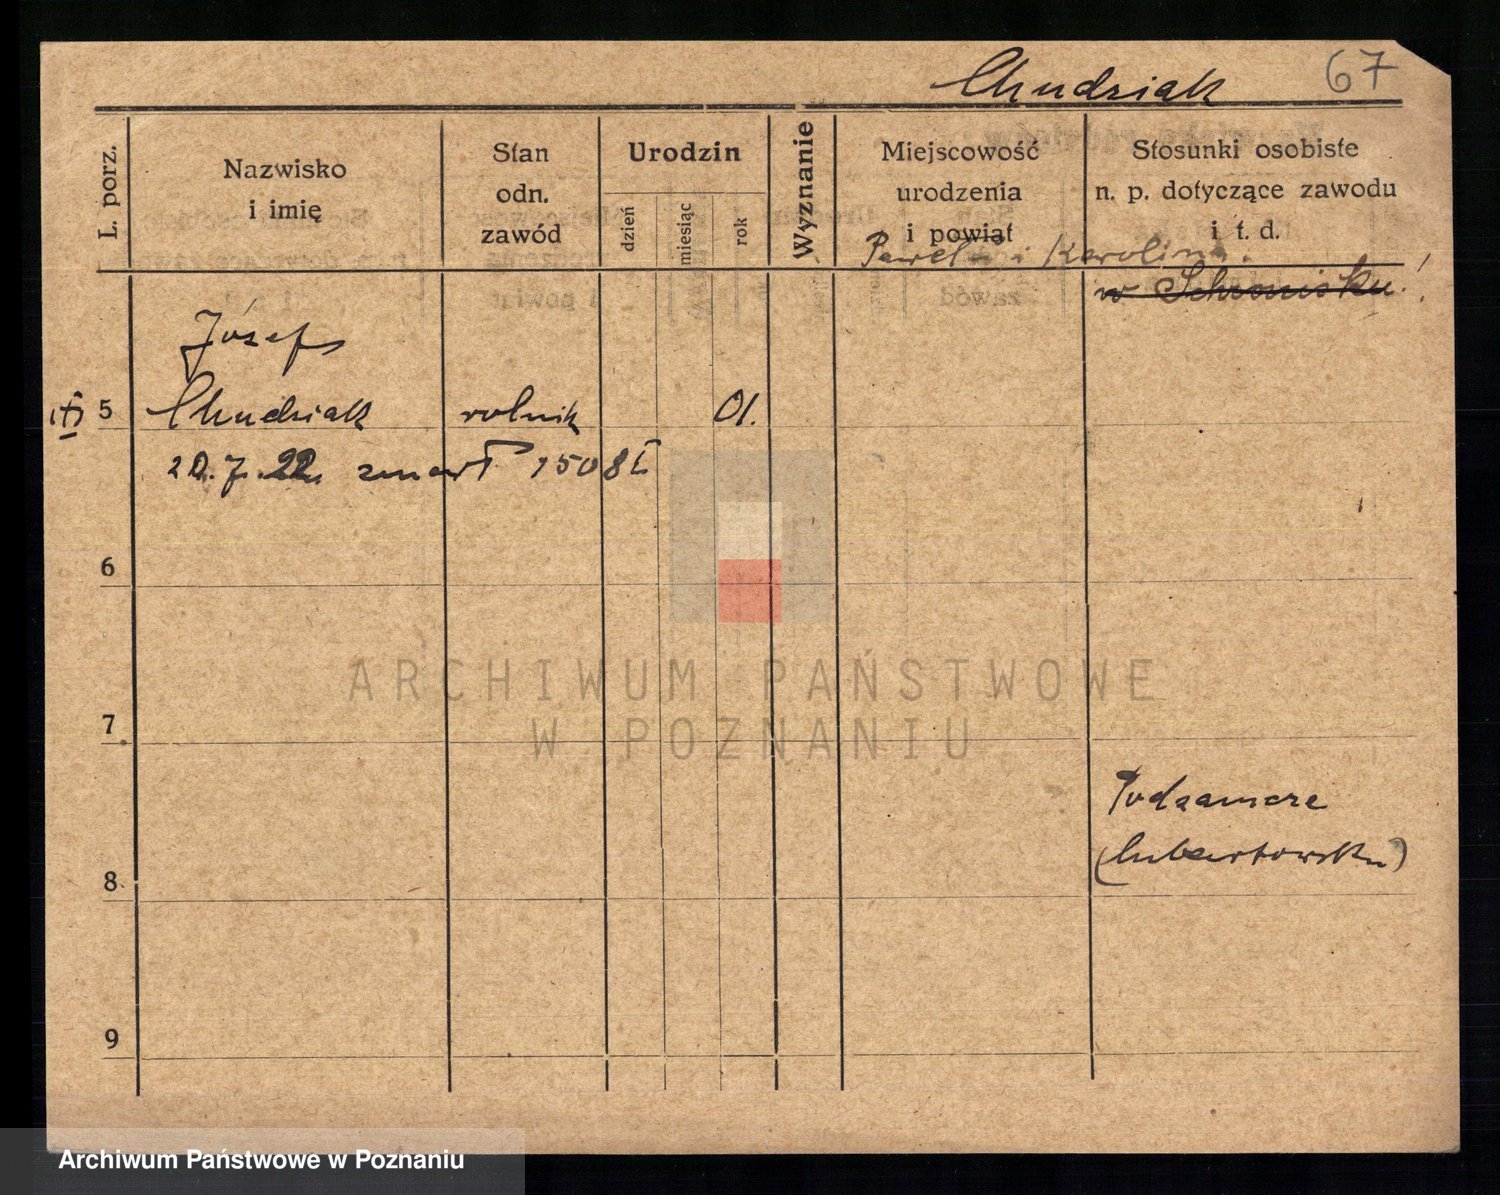 Chudziak 67
L. porz.
Nazwisko
i imię
Stan
odn.
zawód
Urodzin
dzień
miesiąc
rok
Wyznanie
Miejscowość
urodzenia
i powiat
Stosunki osobiste
n. p. dotyczące zawodu
i t. d.
Paweł i Karolina.
w Schronisku!
Józef
5 Chudziak rolnik 01.
20.7.22. zmarł 1508
6
7
Podzamcze
(Lubartowska)
8
9
ARCHIWUM PAŃSTWOWE
W POZNANIU
Archiwum Państwowe w Poznaniu